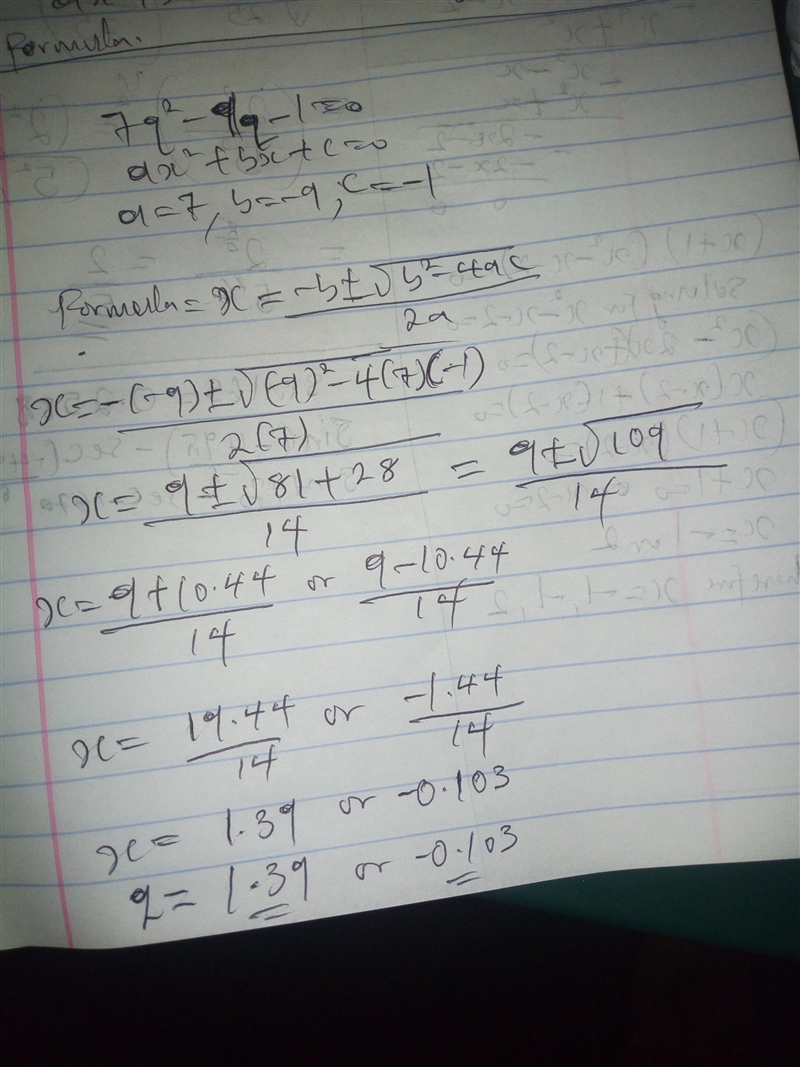 Formula.
7q² - 9q - 1 = 0
ax² + bx + c = 0
a = 7, b = -9, c = -1
Formula = x = (-b ± √(b² - 4ac)) / 2a
x = (-(-9) ± √((-9)² - 4(7)(-1))) / 2(7)
x = (9 ± √(81 + 28)) / 14 = (9 ± √109) / 14
x = (9 + 10.44) / 14 or (9 - 10.44) / 14
x = 19.44 / 14 or -1.44 / 14
x = 1.39 or -0.103
q = 1.39 or -0.103